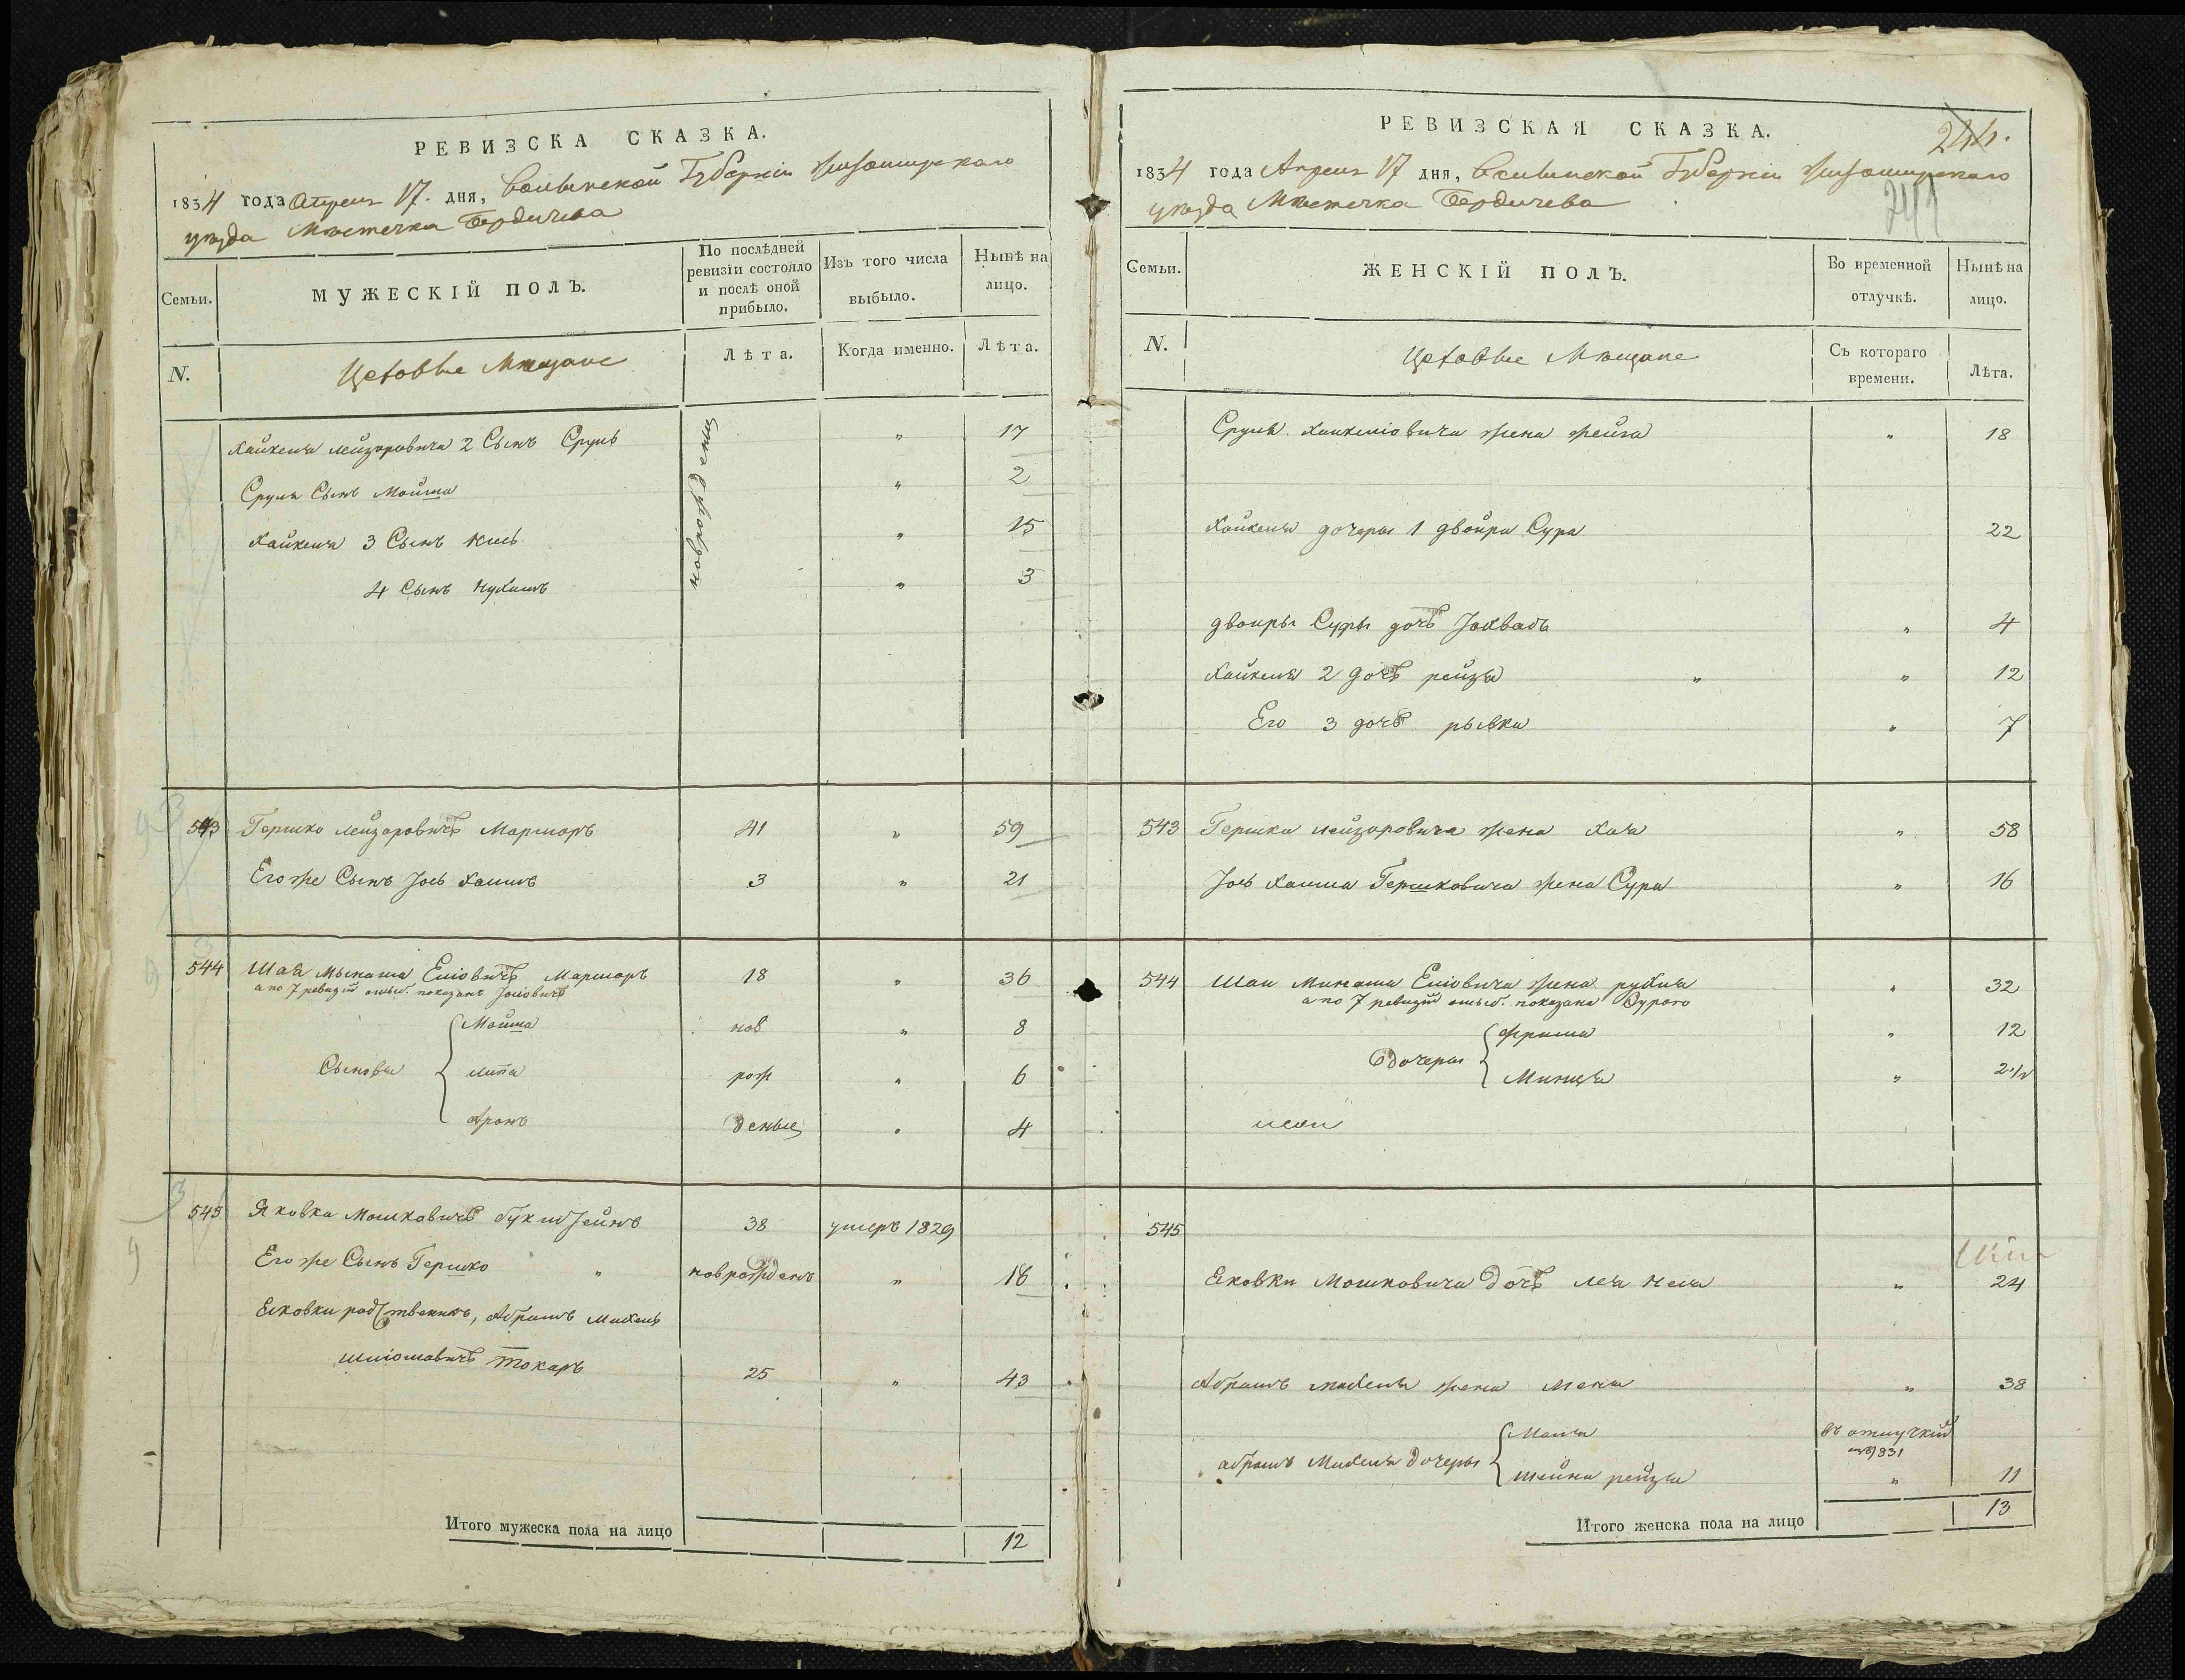 РЕВИЗСКА СКАЗКА.
1834 года Апреля 17. дня, Волынской Губерніи Житомирскаго
уезда Местечка Бердичева
Семьи.
МУЖЕСКІЙ ПОЛЪ.
По послѣдней
ревизіи состояло
и послѣ оной
прибыло.
Изъ того числа
выбыло.
Нынѣ на
лицо.
N.
Цеховые Мещане
Лѣта.
Когда именно.
Лѣта.
Хайкеля лейзоровича 2 Сынъ Сруль новрожденц " 17
Сруля Сынъ Мойша " 2
Хайкеля 3 Сынъ " 15
4 Сынъ Нухимъ " 3
543 Гершко лейзоровичъ Марморъ 41 " 59
Егоже Сынъ Іось Хаимъ 3 " 21
544 Шая Мынаша Еліовичъ Марморъ 18 " 36
а по 7 ревизіи ошиб. показанъ
Сыновья
Мойша нов " 8
липа рож " 6
Аронъ деные " 4
545 Яковка Мошковичъ 38 умеръ 1829
Егоже Сынъ Гершко " новрожденъ " 18
Ековки родственикъ, Абрамъ Михель
шліомовичъ Токаръ 25 " 43
Итого мужеска пола на лицо 12
РЕВИЗСКАЯ СКАЗКА.
244.
1834 года Апреля 17 дня, Волынской Губерніи Житомирскаго
уезда Местечка Бердичева
Семьи.
ЖЕНСКІЙ ПОЛЪ.
Во временной
отлучкѣ.
Нынѣ на
лицо.
N.
Цеховые Мещане
Съ котораго
времени.
Лѣта.
Сруля Хайкеліовича жена Фейга " 18
Хайкеля дочеры 1 двойра Сура 22
двойры Суры дочъ Іохвадъ " 4
Хайкеля 2 дочъ рейзя " " 12
Его 3 дочъ рывка " 7
543 Гершка лейзоровича жена Хая " 58
Іось Хаима Гершковича жена Сура " 16
544 Шаи Минаши Еліовича жена рухля " 32
а по 7 ревизіи ошиб. показана Сурою
Дочеры
фрима " 12
Минця " 2 1/2
545
Ековки Мошковича Дочъ лея неся " 24
Абрамъ михеля жена " 38
абрамъ Михеля Дочеры
Малья въ отлучкій
831
шейна рейзя " 11
Итого женска пола на лицо 13